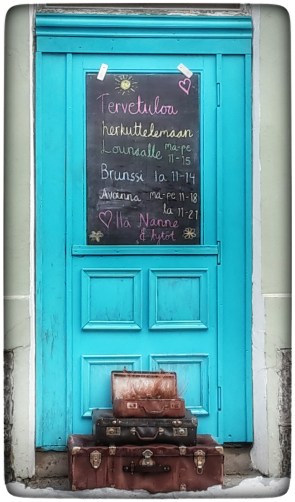 Tervetuloa
herkuttelemaan
Lounaalle ma-pe
11-15
Brunssi la 11-14
Avoinna ma-pe 11-18
la 11-21
Ilä Nanne
& tytöt